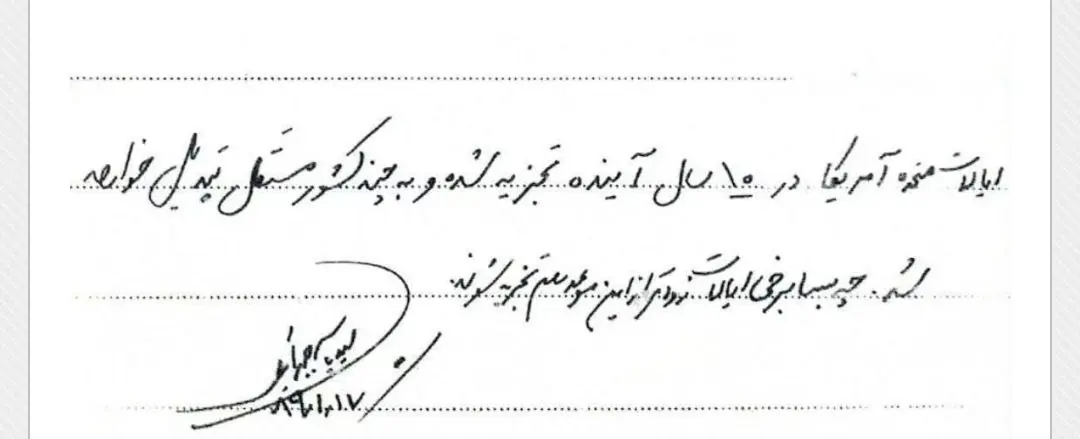 ایالات متحده آمریکا در ۱۰ سال آینده تجزیه شده و به چند کشور مستقل تبدیل خواهد
شد. چه بسا برخی ایالات زودتر از این موعد هم تجزیه شوند.
۸۹،۱،۱۷